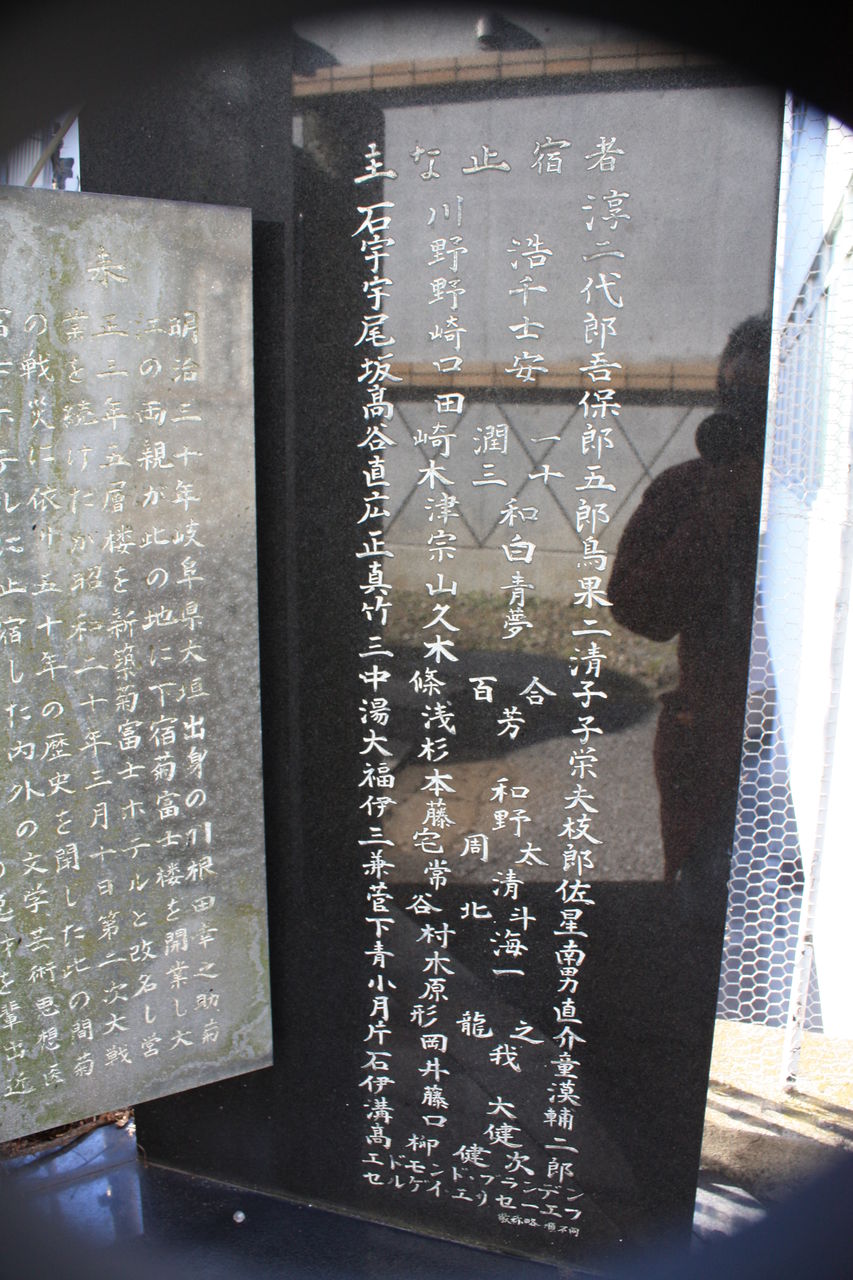 来
明治三十年岐阜県大垣出身の羽根田幸之助菊
江の両親が此の地に下宿菊富士楼を開業し大
正三年五層楼を新築菊富士ホテルと改名し営
業を続けたが昭和二十年三月十日第二次大戦
の戦災に依り五十年の歴史を閉じた此の間菊
富士ホテルに止宿した内外の文学芸術思想医
の逸材を輩出近
主な止宿者
石川淳
宇野浩二
宇野千代
尾崎士郎
坂口安吾
高田保
谷崎潤一郎
直木三十五
広津和郎
正宗白鳥
真山青果
竹久夢二
三木清
中條百合子
湯浅芳子
大杉栄
福本和夫
伊藤野枝
三宅周太郎
兼常清佐
菅谷北斗星
下村海南
青木一男
小原直
月形龍之介
片岡我童
石井漠
伊藤大輔
溝口健二
高柳健次郎
エドモンド・ブランデン
セルゲイ・エリセーエフ
敬称略 順不同